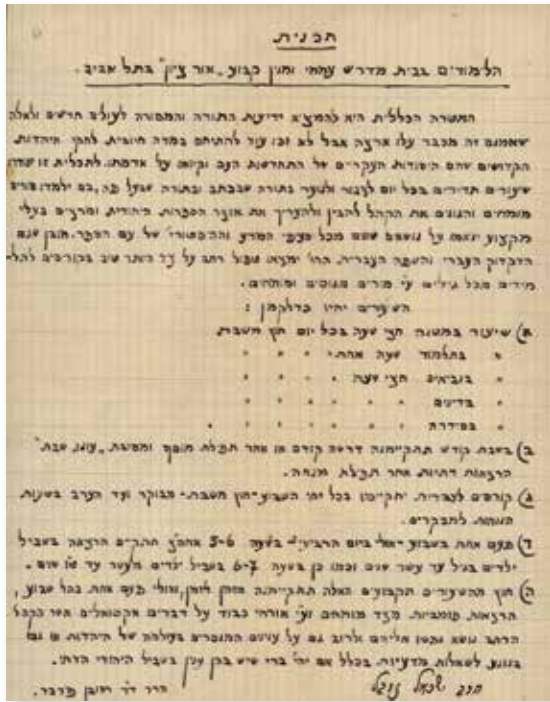 תכנית
הלימודים בבית מדרש עממי ומנין קבוע „אור ציון" בתל אביב.
המטרה הכללית היא להמציא ידיעת התורה והמסורה לעולים חדשים ולאלה
שאמנם זה מכבר עלו ארצה אבל לא זכו עוד להתיחס במדה חיובית לחקי היהדות
הקדושים שהם היסודות העקריים של התחדשות העם וקיומו על אדמתו. לתכלית זו
שעורים תדירים בכל יום לצבור ולנוער בתורה שבכתב ובתורה שבעל פה, בם ילמדו מורים
מומחים והגונים את הקהל להבין ולהעריך את אוצר הספרות היהודית, ומרצים בעלי
מקצוע ינאמו על נושאים שונים מכל סעיפי המדע וההיסטורי' של עם הספר. מובן שגם
הדקדוק העברי והשפה העברית, הרו' ימצאו טפול רחב על צד היותר טוב בקורסים לתל-
מידים מכל גילים ע"י מורים מנוסים ומומחים.
השעורים יהיו כדלקמן:
א) שיעור במשנה חצי שעה בכל יום חוץ משבת.
" בתלמוד שעה אחת " " " "
" בנביאים חצי שעה " " " "
" בדינים " " " " " "
" בסידרה " " " " " "
ב) בשבת קודש תתקיימנה דרשה קודם או אחר תפלת מוסף ומסבת „עונג שבת"
הרצאות דתיות אחר תפלת מנחה.
ג) קורסים לעברית יתקיימו בכל ימי השבוע-חוץ משבת-מבוקר ועד הערב בשעות
הנוחות למבקרים.
ד) פעם אחת בשבוע -אולי ביום הרביעי- בשעה 5-6 אחה"צ תתקיים הרצאה בשביל
ילדים בגיל עד עשר שנים וכמו כן בשעה 6-7 בשביל ילדים מעשר עד ט"ו שנים.
ה) חוץ מהשעורים הקבועים האלה תתקיימנה מזמן לזמן, אולי פעם אחת בכל שבוע,
הרצאות פומביות מצד מומחים וע"י אורחי כבוד על דברים אקטואלים אשר הקהל
הרחב נושא נפשו אליהם ולרוב גם על ענינים הנוגעים בעולמה של היהדות או גם
בנוגע לשאלות מדעיות בכלל אם יהי' ברי שיש בהן ענין בשביל היהודי הדתי.
הרב ד"ר ראובן פרבר.
הרב ישכר